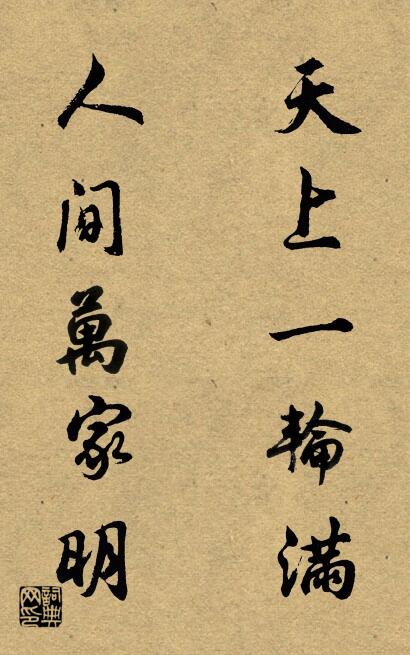 天上一輪滿
人间萬家明
詞典網印